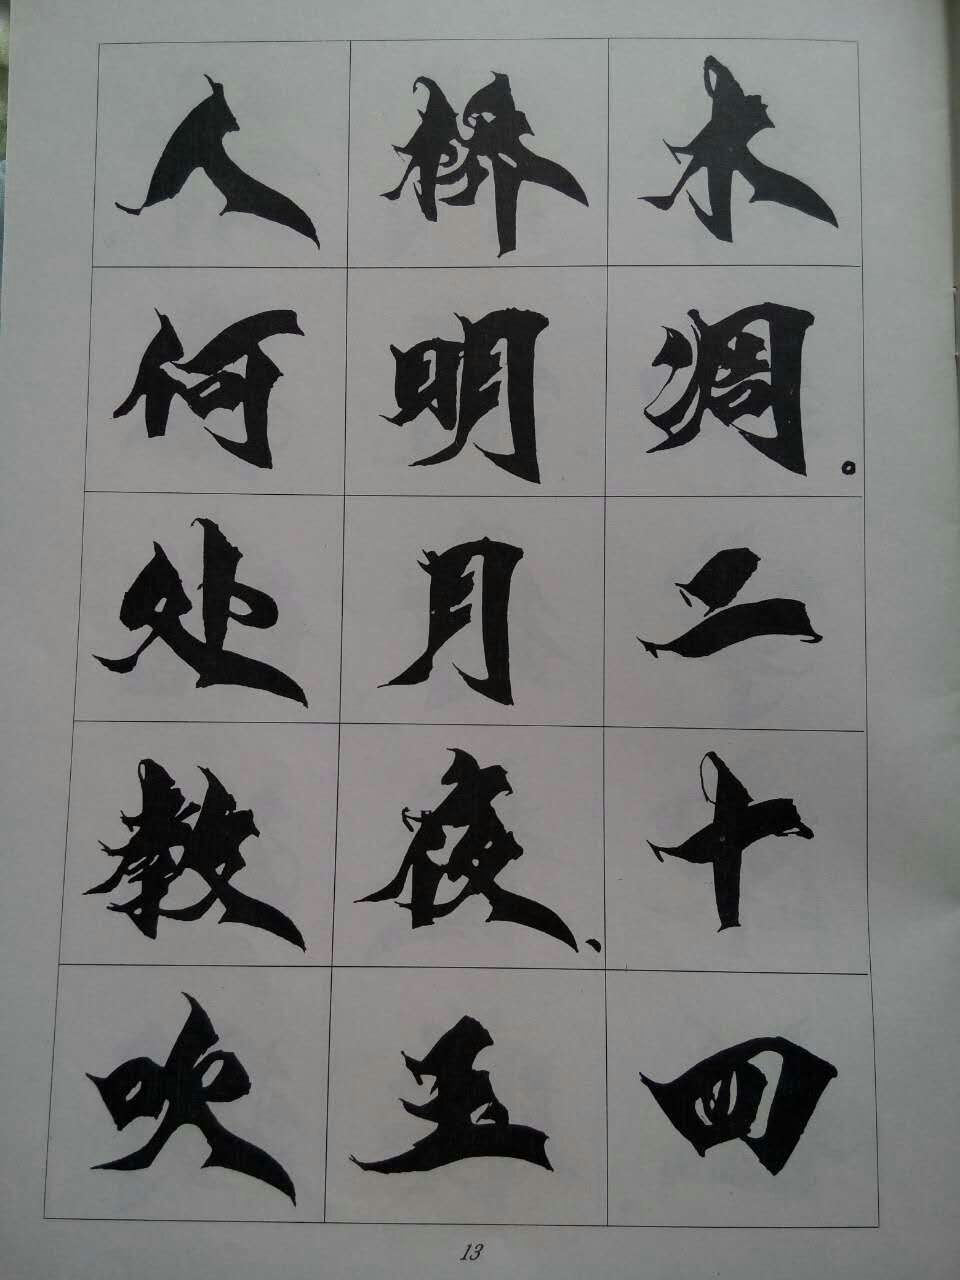 木凋。二十四
桥明月夜、玉
人何处教吹
13